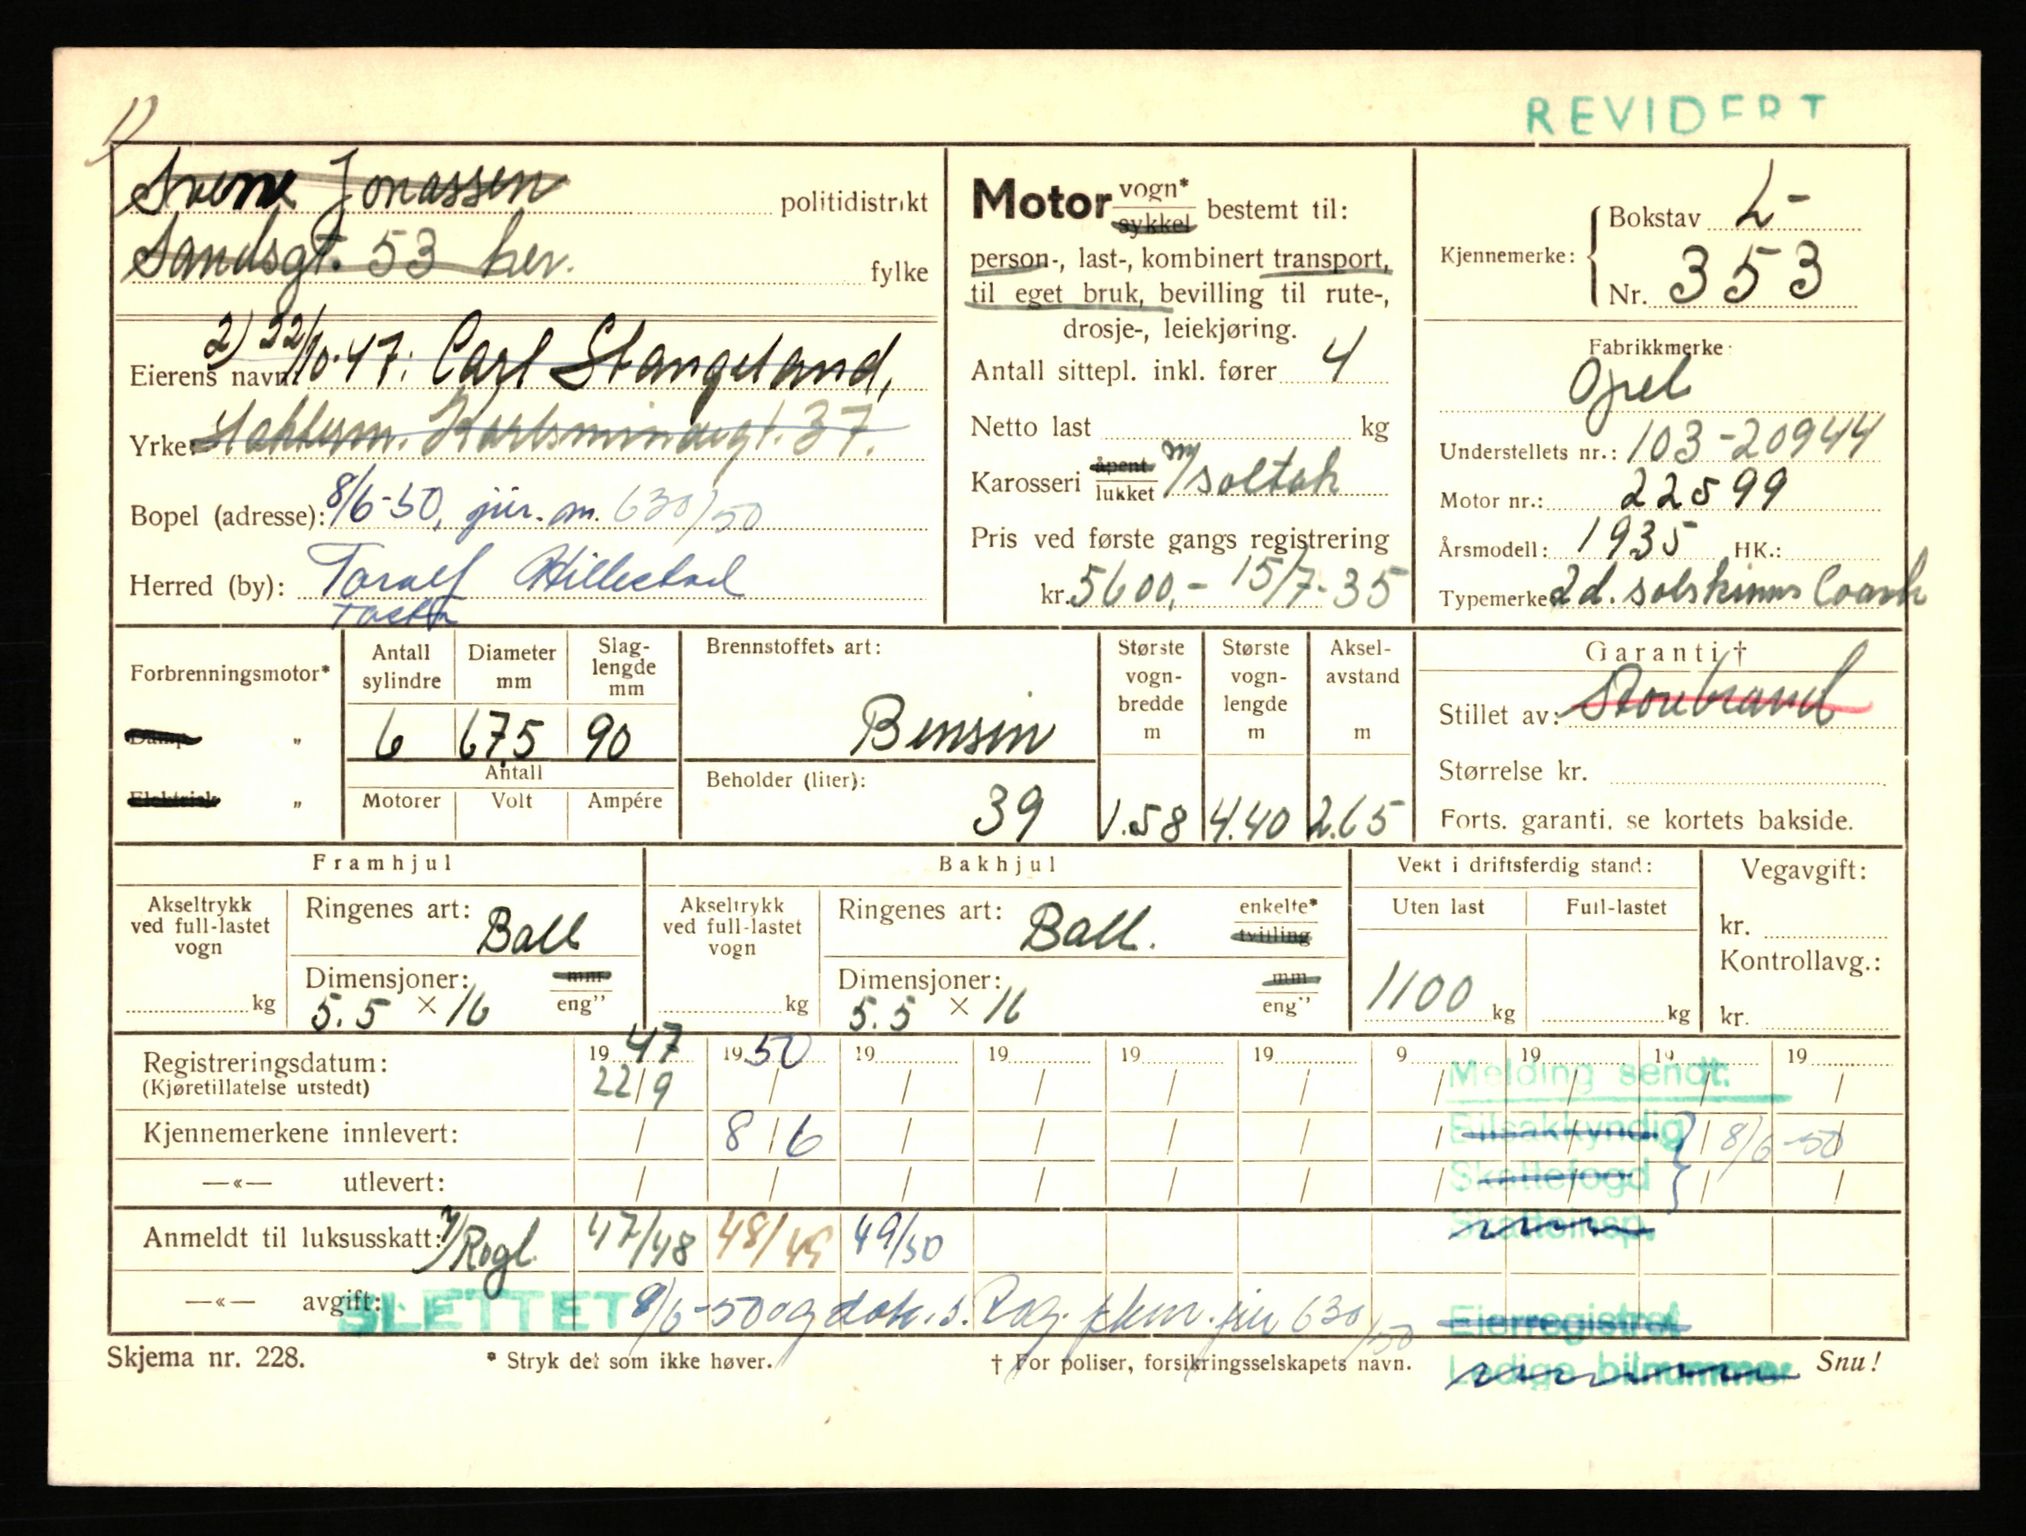 REVIDERT
1)
Svene Jonassen politidistrikt
Sandsgt. 53 her. fylke
2) 22/10-47: Carl Stangeland,
Eierens navn:
Yrke: Karlsminnegt. 37.
Bopel (adresse): 8/6-50, jur. nr. 630/50
Herred (by): Toralf Hillestad
Tasta
Motor vogn* sykkel bestemt til:
person-, last-, kombinert transport,
til eget bruk, bevilling til rute-,
drosje-, leiekjøring.
Antall sittepl. inkl. fører 4
Netto last kg
Karosseri åpent lukket m/soltak
Pris ved første gangs registrering
kr. 5600,- 15/7-35
Kjennemerke: Bokstav L-
Nr. 353
Fabrikkmerke:
Opel
Understellets nr.: 103-20944
Motor nr.: 22599
Årsmodell: 1935 HK.:
Typemerke 2d. solskinns Coach
Forbrenningsmotor*
Damp "
Elektrisk "
Antall sylindre Diameter mm Slag-lengde mm
6 67,5 90
Antall
Motorer Volt Ampére
Brennstoffets art:
Bensin
Beholder (liter):
39
Største vogn-bredde m Største vogn-lengde m Aksel-avstand m
1.58 4.40 2.65
Garanti †
Stillet av: Storebrand
Størrelse kr.
Forts. garanti, se kortets bakside.
Framhjul
Akseltrykk ved full-lastet vogn
kg
Ringenes art: Ball
Dimensjoner: mm
5.5 × 16 eng"
Bakhjul
Akseltrykk ved full-lastet vogn
kg
Ringenes art: Ball. enkelte* tvilling
Dimensjoner: mm
5.5 × 16 eng"
Vekt i driftsferdig stand:
Uten last Full-lastet
1100 kg kg
Vegavgift:
kr.
Kontrollavg.:
kr.
Registreringsdatum: 1947 1950 19 19 19 19 9 19 19 19
(Kjøretillatelse utstedt) 22/9 / / / / / / / / /
Melding sendt:
Kjennemerkene innlevert: / 8/6 / / / / / / / /
Bilsakkyndig 8/6-50
—«— utlevert: / / / / / / / / / /
Skattefogd
Anmeldt til luksusskatt: 1/Rogl. 47/48 48/49 49/50
Skatteinsp.
—«— avgift: SLETTET 8/6-50 og dok. s. Rog. pkm. jur 630/50
Eierregistret
Skjema nr. 228. * Stryk det som ikke høver. † For poliser, forsikringsselskapets navn. Snu!
Ledige bilnummer